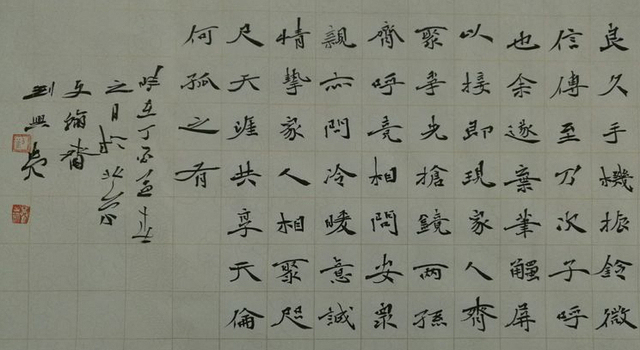 良久手機振鈴微
信傳至乃次子呼
也余遂棄筆觸屏
以接即現家人齊
聚爭先搶鏡兩孫
齊呼竟相問安眾
親亦問冷暖意誠
情摯家人相聚咫
尺天涯共享天倫
何孤之有
時在丁酉
之月於北京